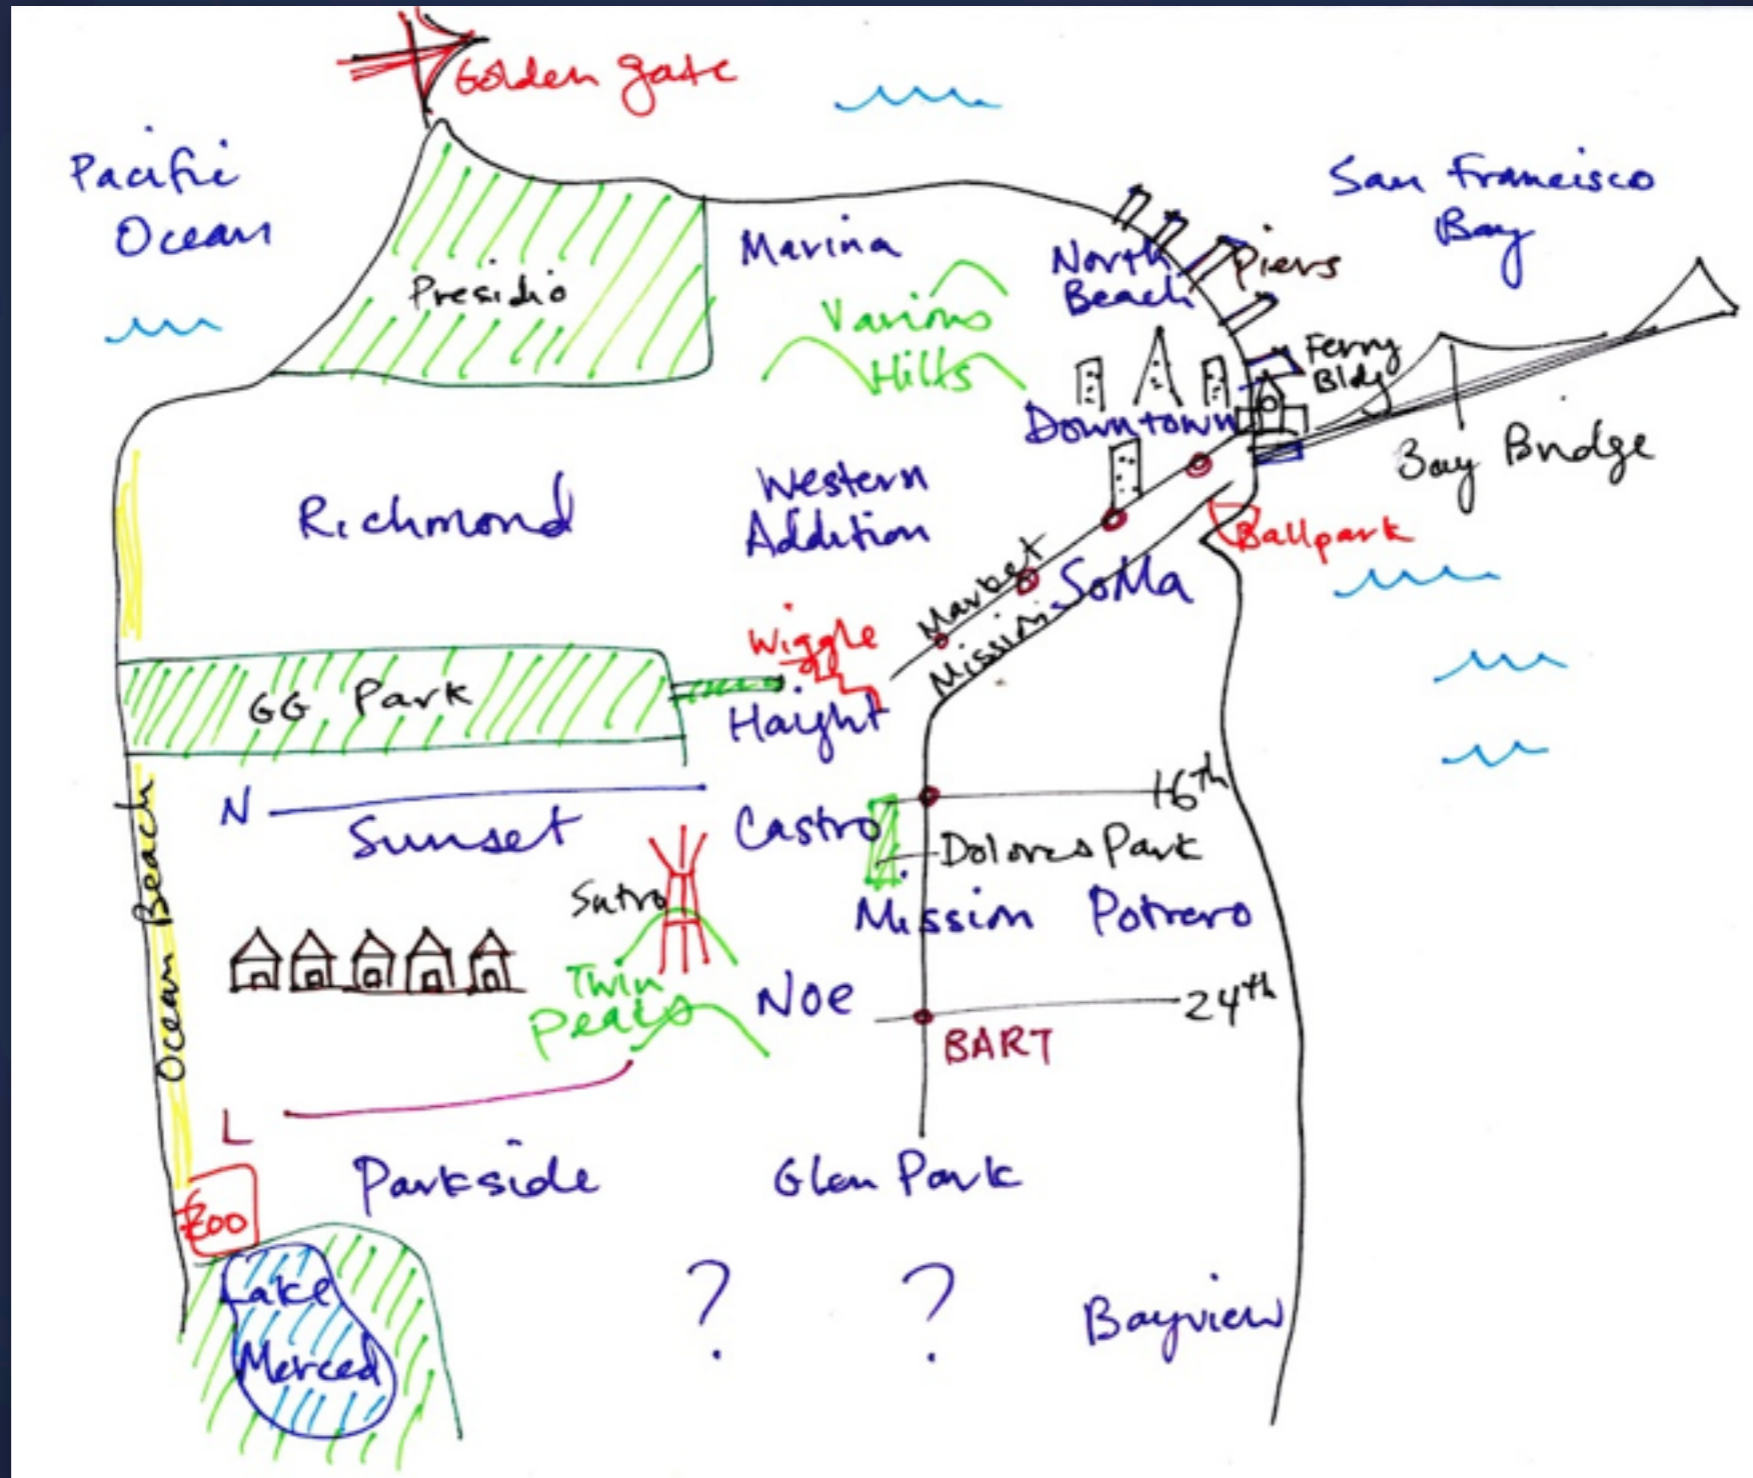 Golden gate
Pacific
Ocean
San Francisco
Bay
Marina
North
Beach
Piers
Presidio
Various
Hills
Ferry
Bldg
Downtown
Bay Bridge
Richmond
Western
Addition
Ballpark
Market
SoMa
Mission
Wiggle
GG Park
Haight
N
Sunset
Castro
16th
Dolores Park
Ocean Beach
Sutro
Mission
Potrero
Twin
Peaks
Noe
24th
BART
L
Parkside
Glen Park
Zoo
Lake
Merced
?
?
Bayview